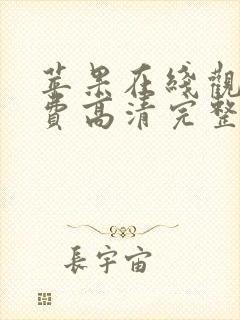 苹果在綫觀
費高清完整
長宇宙